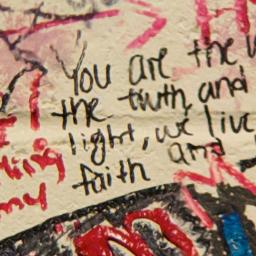 You are the
the truth and
light, we live
faith and
my